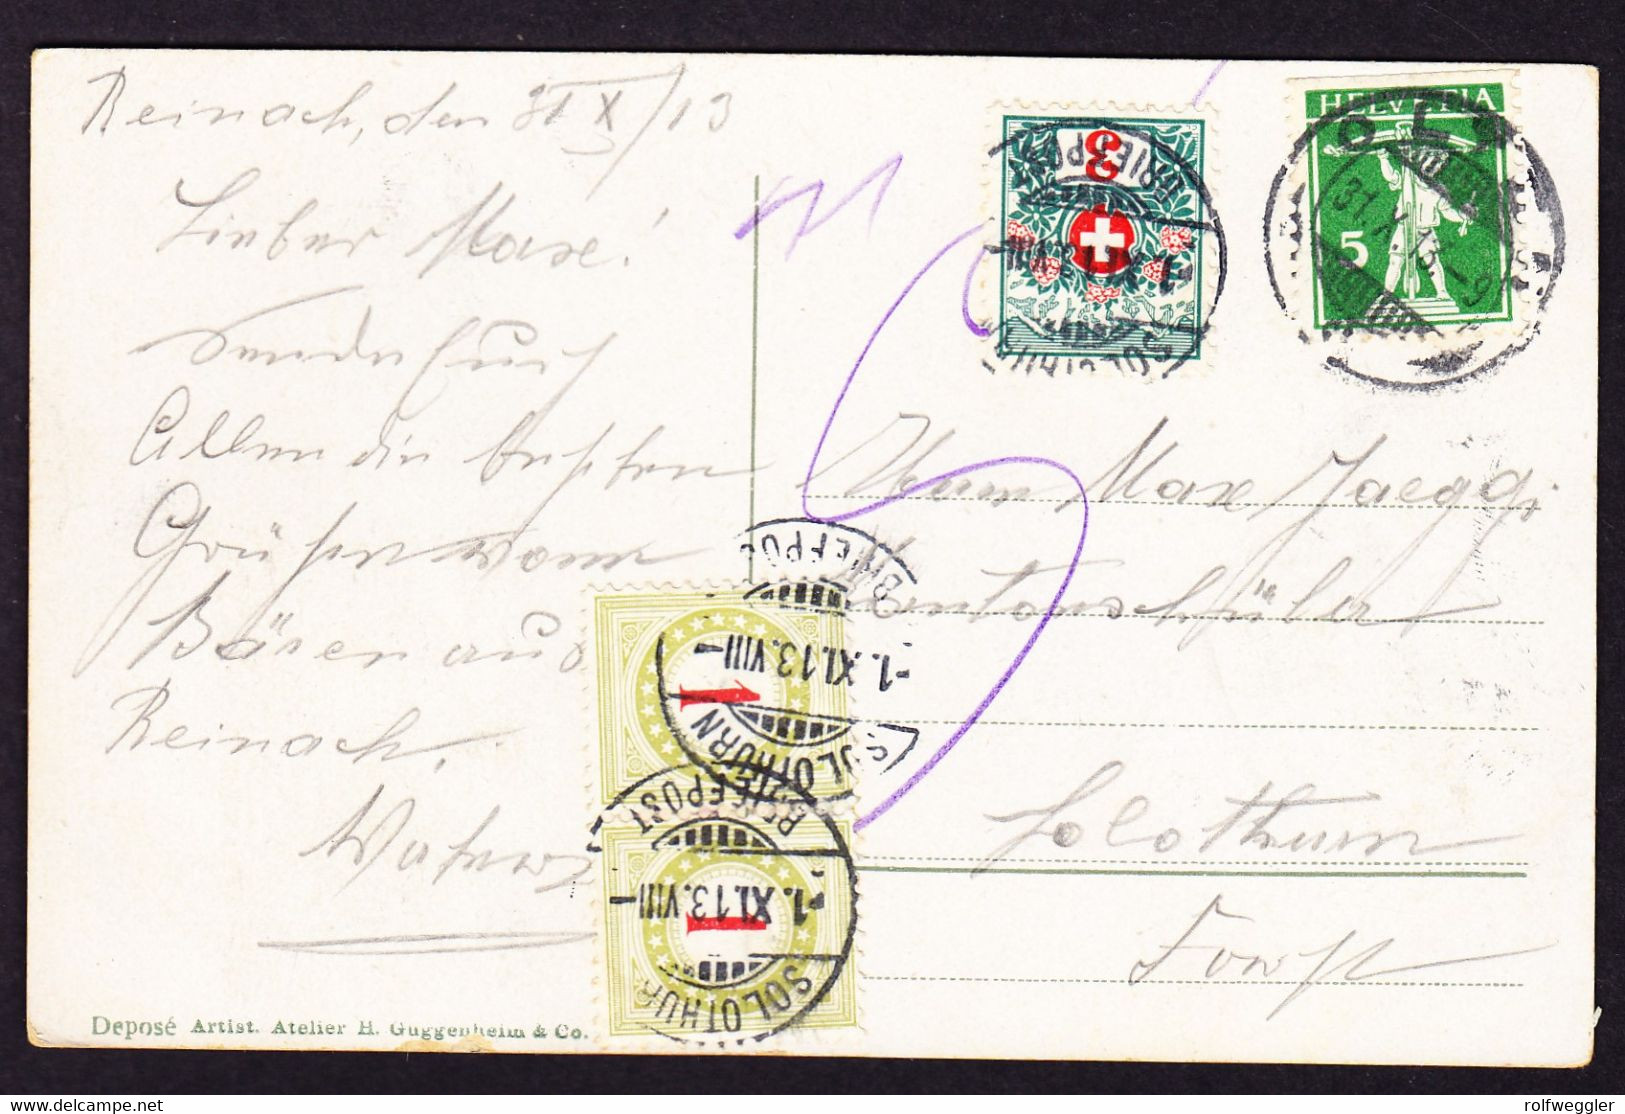 Reinach, den 31 X/13
Lieber Max!
Sende Euch
Allen die besten
Grüße vom
Bären aus
Reinach.
Deposé Artist. Atelier H. Guggenheim & Co.
3
BRIEFPOST
-1.XI.13.VIII-
SOLOTHURN
HELVETIA
5
OLTEN
31.X.13.-9
Herrn Max Jaeggi
Kantonsschüler
Solothurn
BRIEFPOST
-1.XI.13.VIII-
SOLOTHURN
1
BRIEFPOST
-1.XI.13.VIII-
SOLOTHURN
1
delcampe.net
rolfweggler